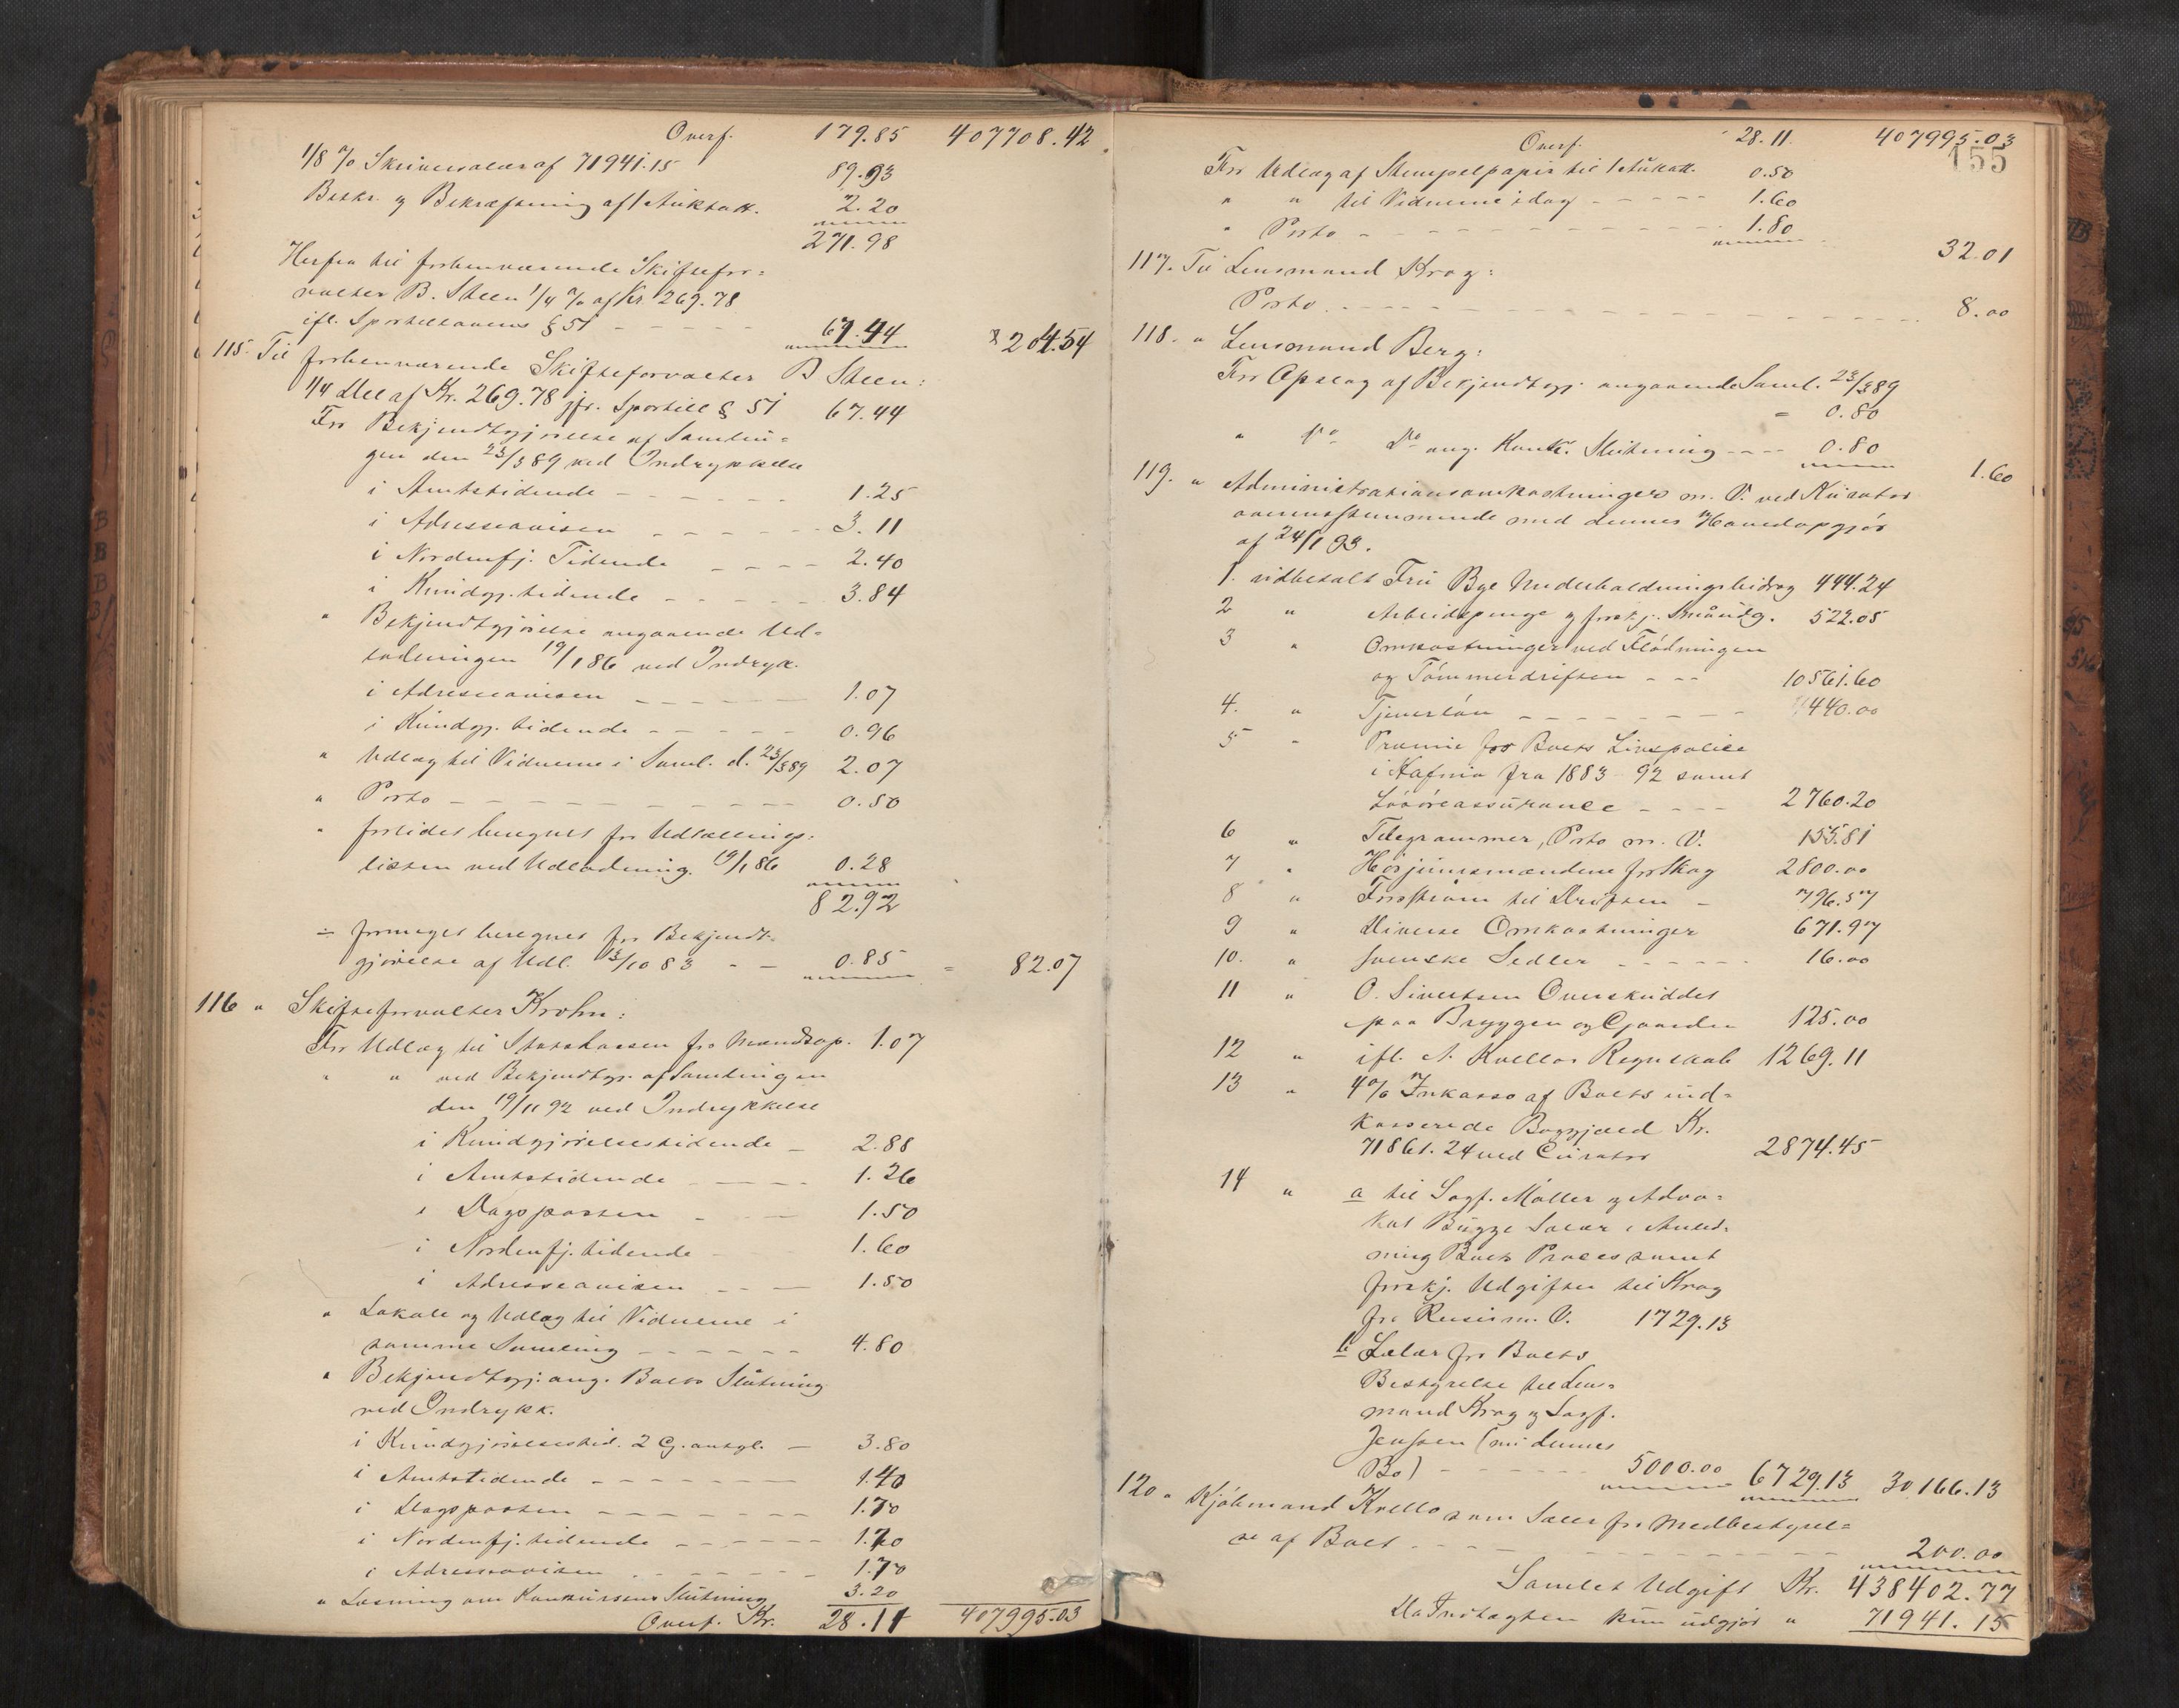 Overf. 179.85 407708.42
1/8 % Skriversalær af 71941.15 89.93
Beskr. og Bekræftning af 1 Auktatt. 2.20
271.98
Herfra til forhenværende Skiftefor=
valter B. Steen 1/4 % af Kr. 269.78
ifl. Sportellovens § 51 - - - - - 67.44 204.54
115. Til forhenværende Skifteforvalter B Steen:
1/4 Del af Kr. 269.78 jfr. Sportell § 51 67.44
For Bekjendtgjørelse af Samlin=
gen den 23/3 89 ved Indrykkelse
i Amtstidende - - - - - - 1.25
i Adresseavisen - - - - - - 3.11
i Nordenfj. Tidende - - - - 2.40
i Kundgj. tidende - - - - - 3.84
" Bekjendtgjørelse angaaende Ud=
lodningen 19/1 86 ved Indryk.
i Adresseavisen - - - - - - 1.07
i Kundgj. tidende - - - - - 0.96
" Udlæg til Vidnerne i Saml. d. 23/3 89 2.07
" Porto - - - - - - - - - - - 0.50
" forlidet beregnet for Udlodnings=
listen ved Udlodning. 19/1 86 0.28
82.92
÷ formeget beregnet for Bekjendt=
gjørelse af Udl. 13/10 83 - - 0.85 = 82.07
116 " Skifteforvalter Krohn:
For Udlæg til Statskassen for Mandtap. 1.07
" " ved Bekjendtgj. af Samlingen
den 19/11 92 ved Indrykkelse
i Kundgjørelsestidende - 2.88
i Amtstidende - - - - - 1.26
i Dagsposten - - - 1.50
i Nordenfj. tidende - 1.60
i Adresseavisen - - - 1.50
" Lokale og Udlæg til Vidnerne i
samme Samling - - - - - - 4.80
" Bekjendtgj. ang. Boets Slutning
ved Indrykk.
i Kundgjørelsestid. 2 G. antgl. - 3.80
i Amtstidende - - - - - - - 1.40
i Dagsposten - - - - - - - 1.70
i Nordenfj. tidende - - - - - - 1.70
i Adresseavisen - - - - - - 1.70
" Læsning om Konkursens Slutning 3.20
Overf. Kr. 28.11 407995.03
Overf. 28.11 407995.03
155
For Udlæg af Stempelpapir til 1 Auktatt. 0.50
" " til Vidnerne idag - - - - - 1.60
" Porto - - - - - - - - - - - 1.80 32.01
117. Til Lensmand Krog:
Porto - - - - - - - - - - - - 8.00
118. " Lensmand Berg:
For Opslag af Bekjendtgj. angaaende Saml. 23/3 89
= 0.80
" Do Do ang. Konk. Slutning - - - - 0.80 1.60
119. " Administrationsomkostninger m. V. ved Kurator
overensstemmende med dennes Hovedopgjør
af 24/1 93.
1. udbetalt Fru Bye Underholdningsbidrag 444.24
2 " Arbeidspenge og forskj. Småudg. 522.05
3 " Omkostninger ved Flødningen
og Tømmerdriften - - - 10561.60
4. " Tjenerløn - - - - - - - - 440.00
5 " Præmie for Boets Livspolice
i Hafnia fra 1883 - 92 samt
Løsøreassurance - - - - 2760.20
6 " Telegrammer, Porto m. V. 155.81
7 " Høsjunsmændene for Skog 2800.00
8 " Forstrøm til Driften - 796.57
9 " Diverse Omkostninger 671.97
10. " svenske Sedler - - - - - - 16.00
11 " O. Sivertsen Overskuddet
paa Bryggen og Gaarden 125.00
12 " ifl. A. Kvellos Regnskab 1269.11
13 " 4 % Inkasso af Boets ind=
kasserede Boggjæld Kr.
71861.24 ved Curator 2874.45
14 " a til Sagf. Møller og Advo=
kat Bugge Salær i Anled=
ning Boets Proces samt
forskj. Udgifter til Krog
for Reiser m. V. 1729.13
b Salær for Boets
Bestyrelse til Lens=
mand Krog og Sagf.
Jenssen (nu dennes
Bo) - - - - - - 5000.00 6729.13 30166.13
120 " Kjøbmand Kvello som Salær for Medbestyrel=
se af Boet - - - - - - - - - - 200.00
Samlet Udgift Kr. 438402.77
Da Indtægten kun udgjør " 71941.15